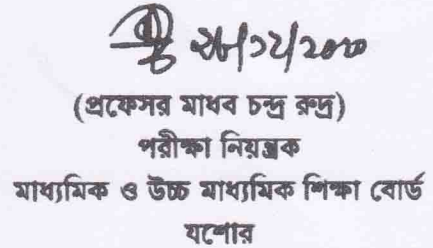 (প্রফেসর মাধব চন্দ্র রুদ্র)
পরীক্ষা নিয়ন্ত্রক
মাধ্যমিক ও উচ্চ মাধ্যমিক শিক্ষা বোর্ড
যশোর